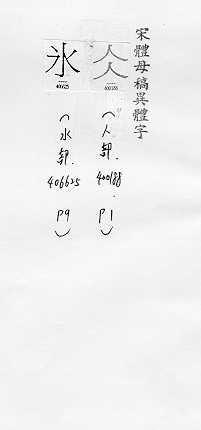 宋體母稿異體字
亼
400188
(人部.
400188.
P1)
氷
406625
(水部.
406625
P9)